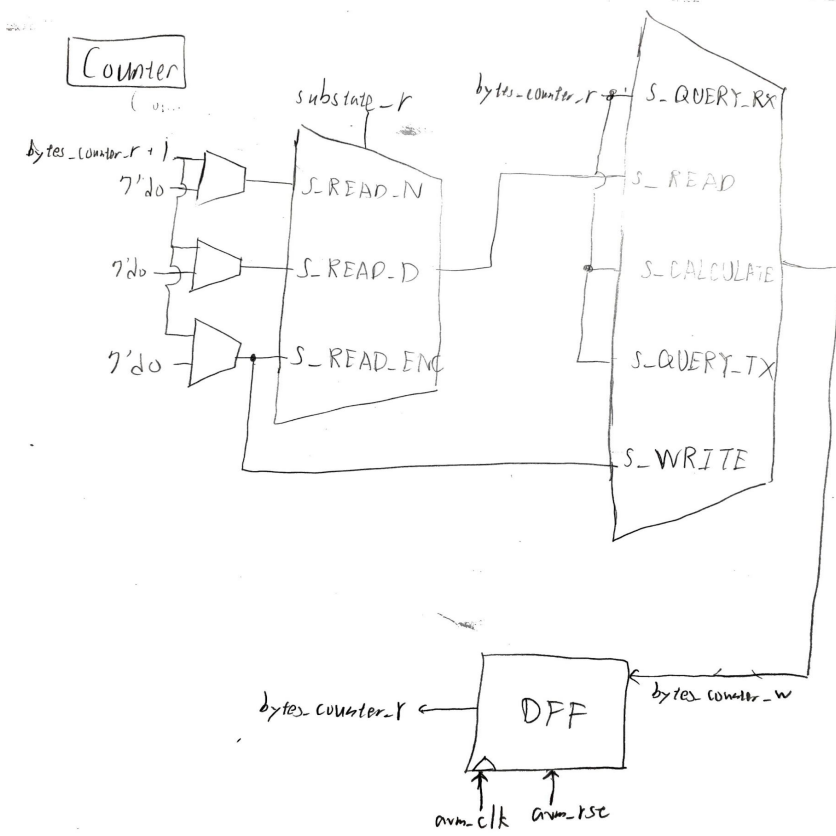 Counter
substate_r
bytes_counter_r + 1
7'd0
S_READ_N
7'd0
S_READ_D
7'd0
S_READ_ENC
bytes_counter_r
S_QUERY_RX
S_READ
S_CALCULATE
S_QUERY_TX
S_WRITE
bytes_counter_w
DFF
bytes_counter_r
avm_clk
avm_rst